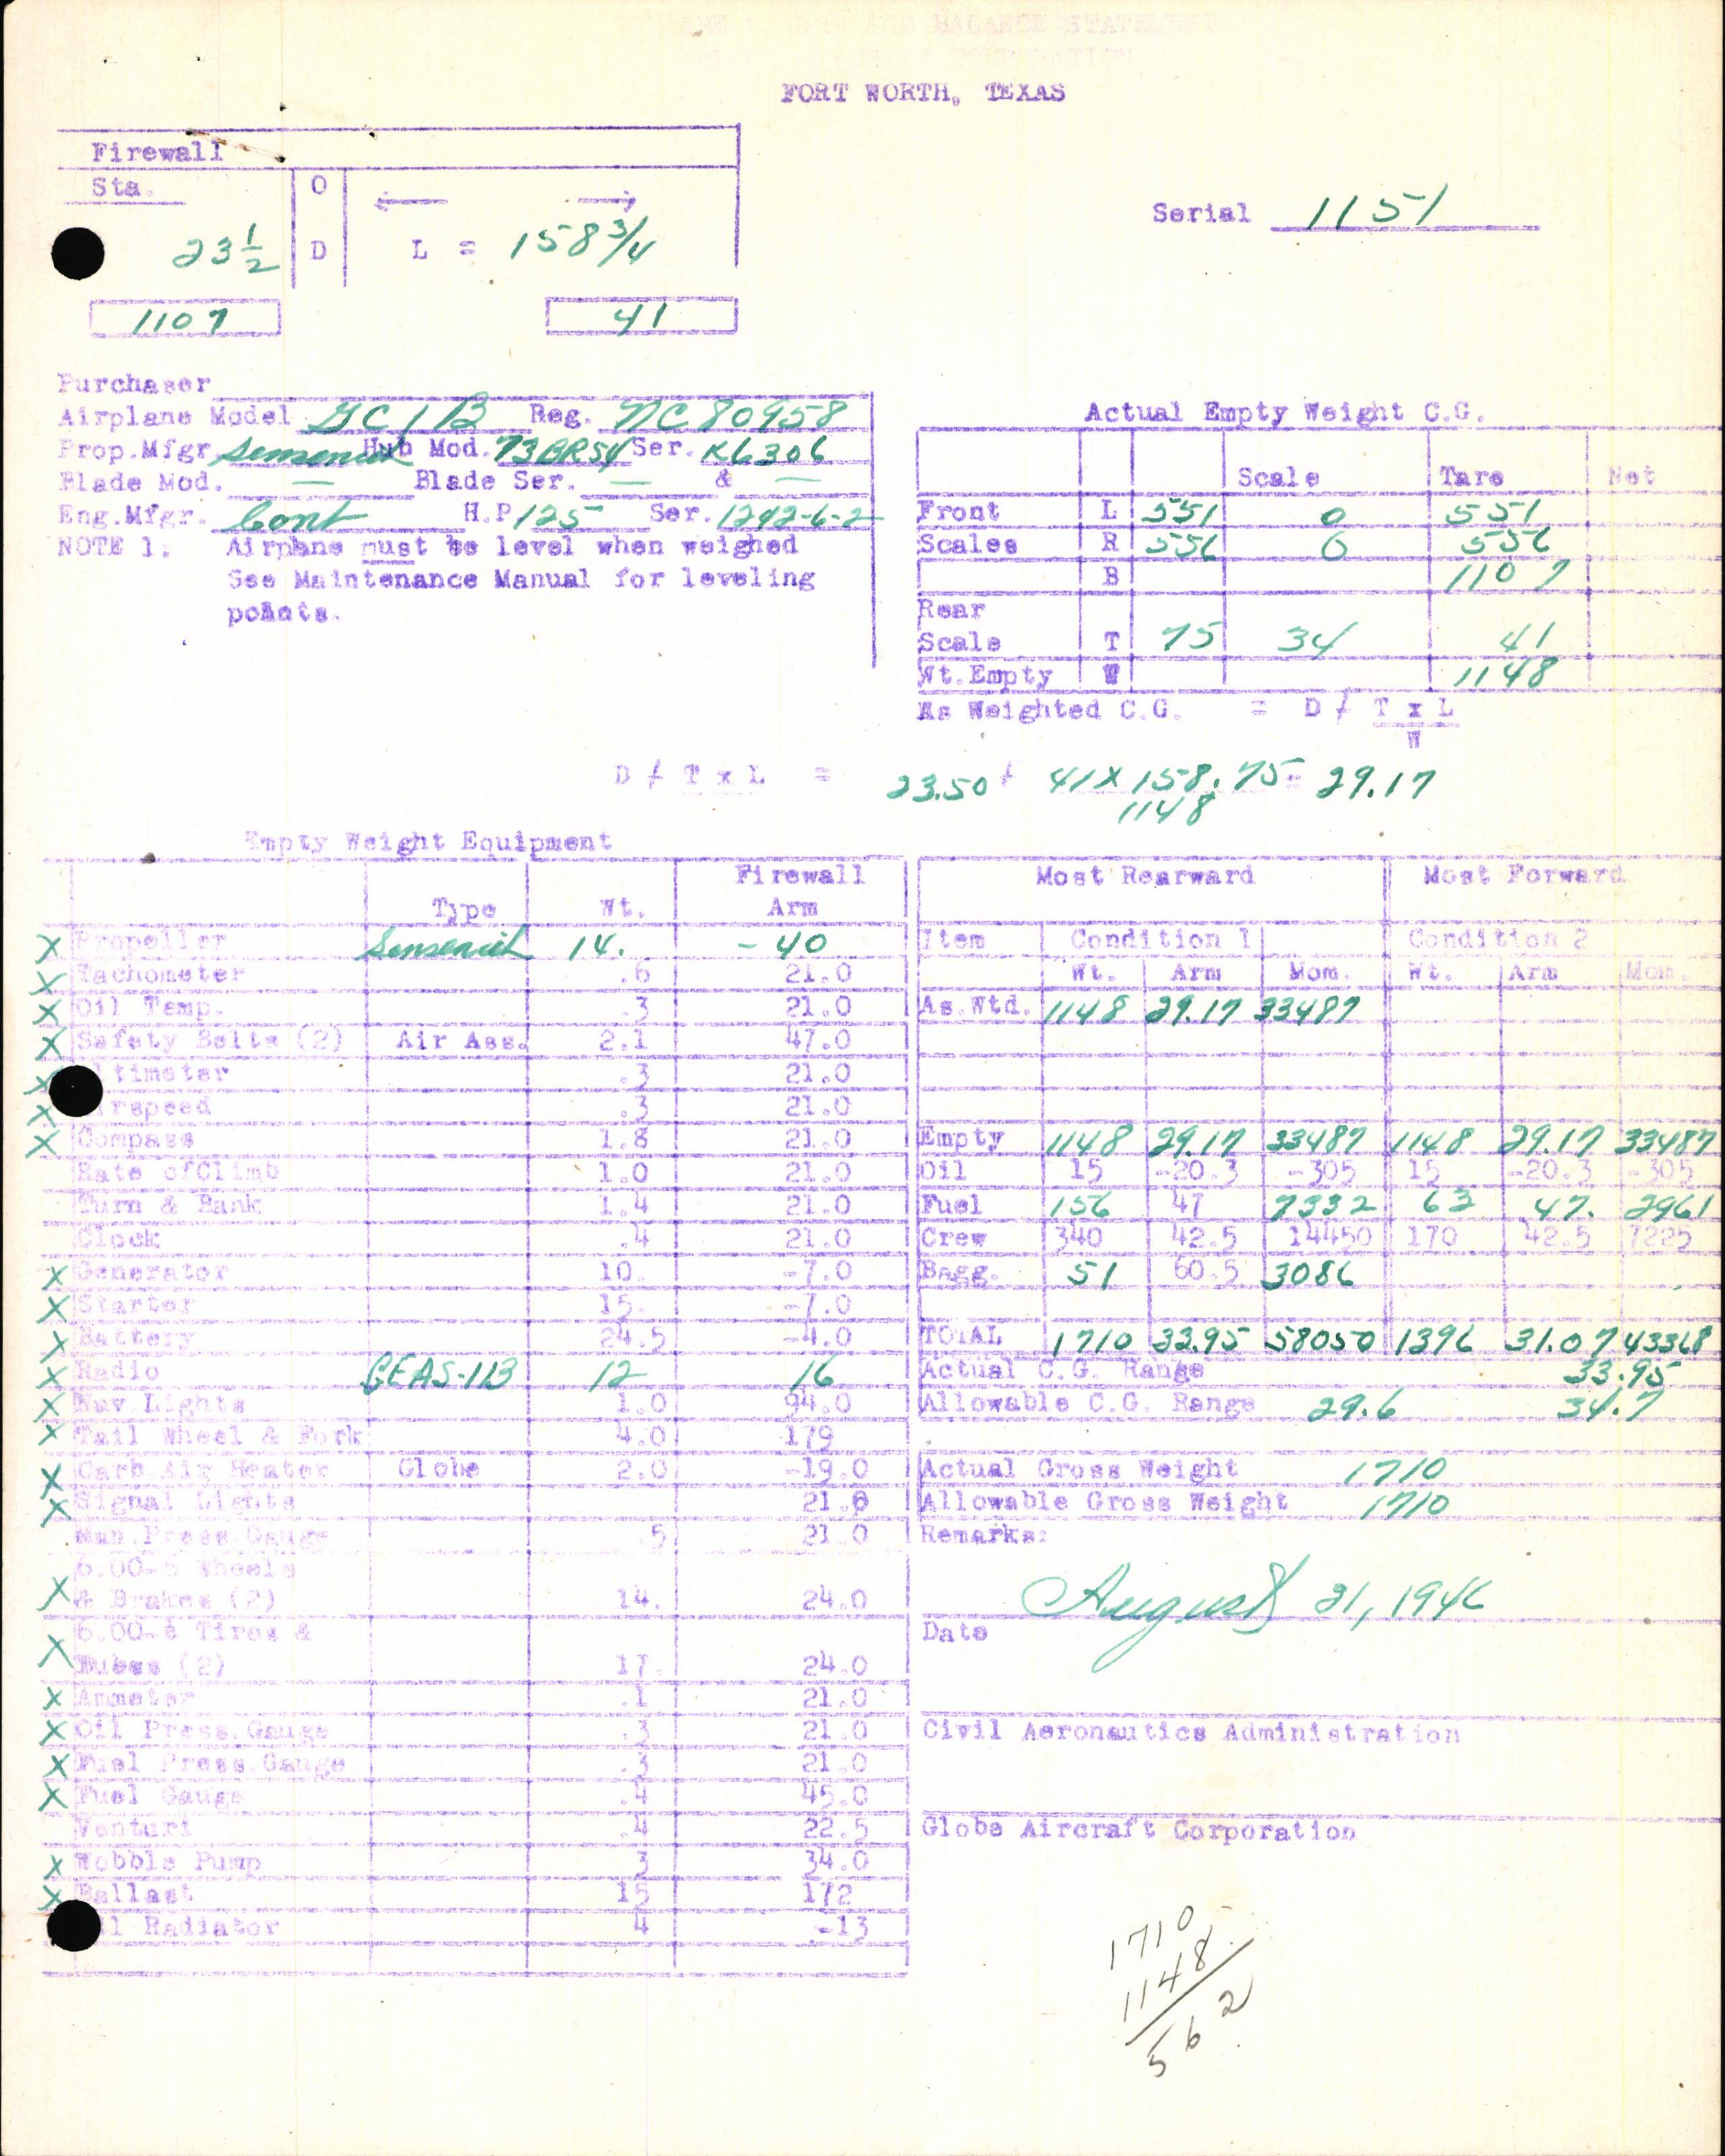 FORT WORTH, TEXAS
Firewall
Sta. O
23 1/2 D L = 158 3/4
Serial 1151
1107 41
Purchaser
Airplane Model GC1B Reg. NC 80958
Prop.Mfgr Sensenich Hub Mod. 73BR54 Ser. K6306
Blade Mod. — Blade Ser. — & —
Eng.Mfgr. Cont H.P 125 Ser. 1242-6-2
NOTE 1. Airplane must be level when weighed
See Maintenance Manual for leveling
points.
Actual Empty Weight C.G.
Scale Tare Net
Front L 551 0 551
Scales R 556 0 556
B 1107
Rear
Scale T 75 34 41
Wt.Empty W 1148
As Weighted C.G. = D / T x L
W
D / T x L = 23.50 + 41 X 158.75 = 29.17
1148
Empty Weight Equipment
Firewall
Type Wt. Arm
X Propeller Sensenich 14. -40
X Tachometer .6 21.0
X Oil Temp. .3 21.0
X Safety Belts (2) Air Ass. 2.1 47.0
X ltimeter .3 21.0
X rspeed .3 21.0
X Compass 1.8 21.0
Rate ofClimb 1.0 21.0
Turn & Bank 1.4 21.0
Clock .4 21.0
X Generator 10. -7.0
X Starter 15. -7.0
X Battery 24.5 -4.0
X Radio GEAS-113 12 16
X Nav.Lights 1.0 94.0
X Tail Wheel & Fork 4.0 179
X Carb.Air Heater Globe 2.0 -19.0
X Signal Lights 21.0
Man.Press.Gauge .5 21.0
6.00-6 Wheels
X & Brakes (2) 14. 24.0
6.00-6 Tires &
X Tubes (2) 17. 24.0
X Ammeter .1 21.0
X Oil Press.Gauge .3 21.0
X Fuel Press.Gauge .3 21.0
X Fuel Gauge .4 45.0
Venturi .4 22.5
X Wobble Pump 3 34.0
X Ballast 15 172
il Radiator 4 -13
Most Rearward Most Forward
Item Condition 1 Condition 2
Wt. Arm Mom. Wt. Arm Mom.
As.Wtd. 1148 29.17 33487
Empty 1148 29.17 33487 1148 29.17 33487
Oil 15 -20.3 -305 15 -20.3 -305
Fuel 156 47 7332 63 47. 2961
Crew 340 42.5 14450 170 42.5 7225
Bagg. 51 60.5 3086
TOTAL 1710 33.95 58050 1396 31.07 43368
Actual C.G. Range 33.95
Allowable C.G. Range 29.6 34.7
Actual Gross Weight 1710
Allowable Gross Weight 1710
Remarks:
August 21, 1946
Date
Civil Aeronautics Administration
Globe Aircraft Corporation
1710
1148
562